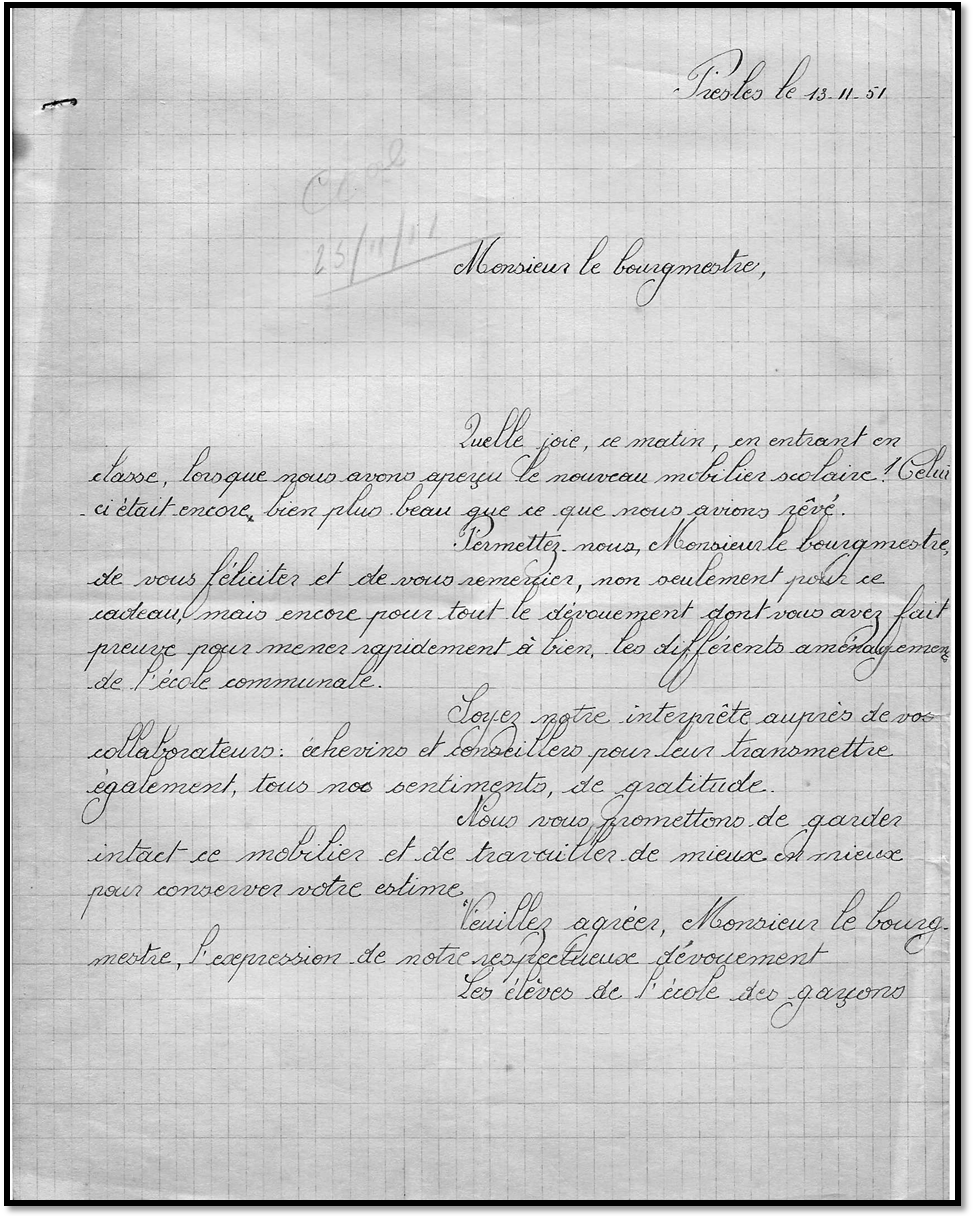 Presles le 13-11-51
Monsieur le bourgmestre,
Quelle joie, ce matin, en entrant en
classe, lorsque nous avons aperçu le nouveau mobilier scolaire! Celui
-ci était encore, bien plus beau que ce que nous avions rêvé.
Permettez-nous, Monsieur le bourgmestre,
de vous féliciter et de vous remercier, non seulement pour ce
cadeau, mais encore pour tout le dévouement dont vous avez fait
preuve pour mener rapidement à bien, les différents aménagements
de l'école communale.
Soyez notre interprête auprès de vos
collaborateurs: échevins et conseillers pour leur transmettre
également, tous nos sentiments, de gratitude.
Nous vous promettons de garder
intact ce mobilier et de travailler de mieux en mieux
pour conserver votre estime.
Veuillez agréer, Monsieur le bourg-
mestre, l'expression de notre respectueux dévouement
Les élèves de l'école des garçons